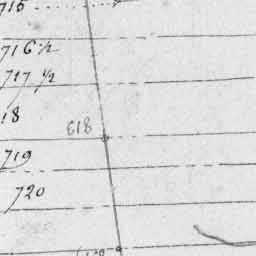 715
716 ½
717 ½
18
618
719
720